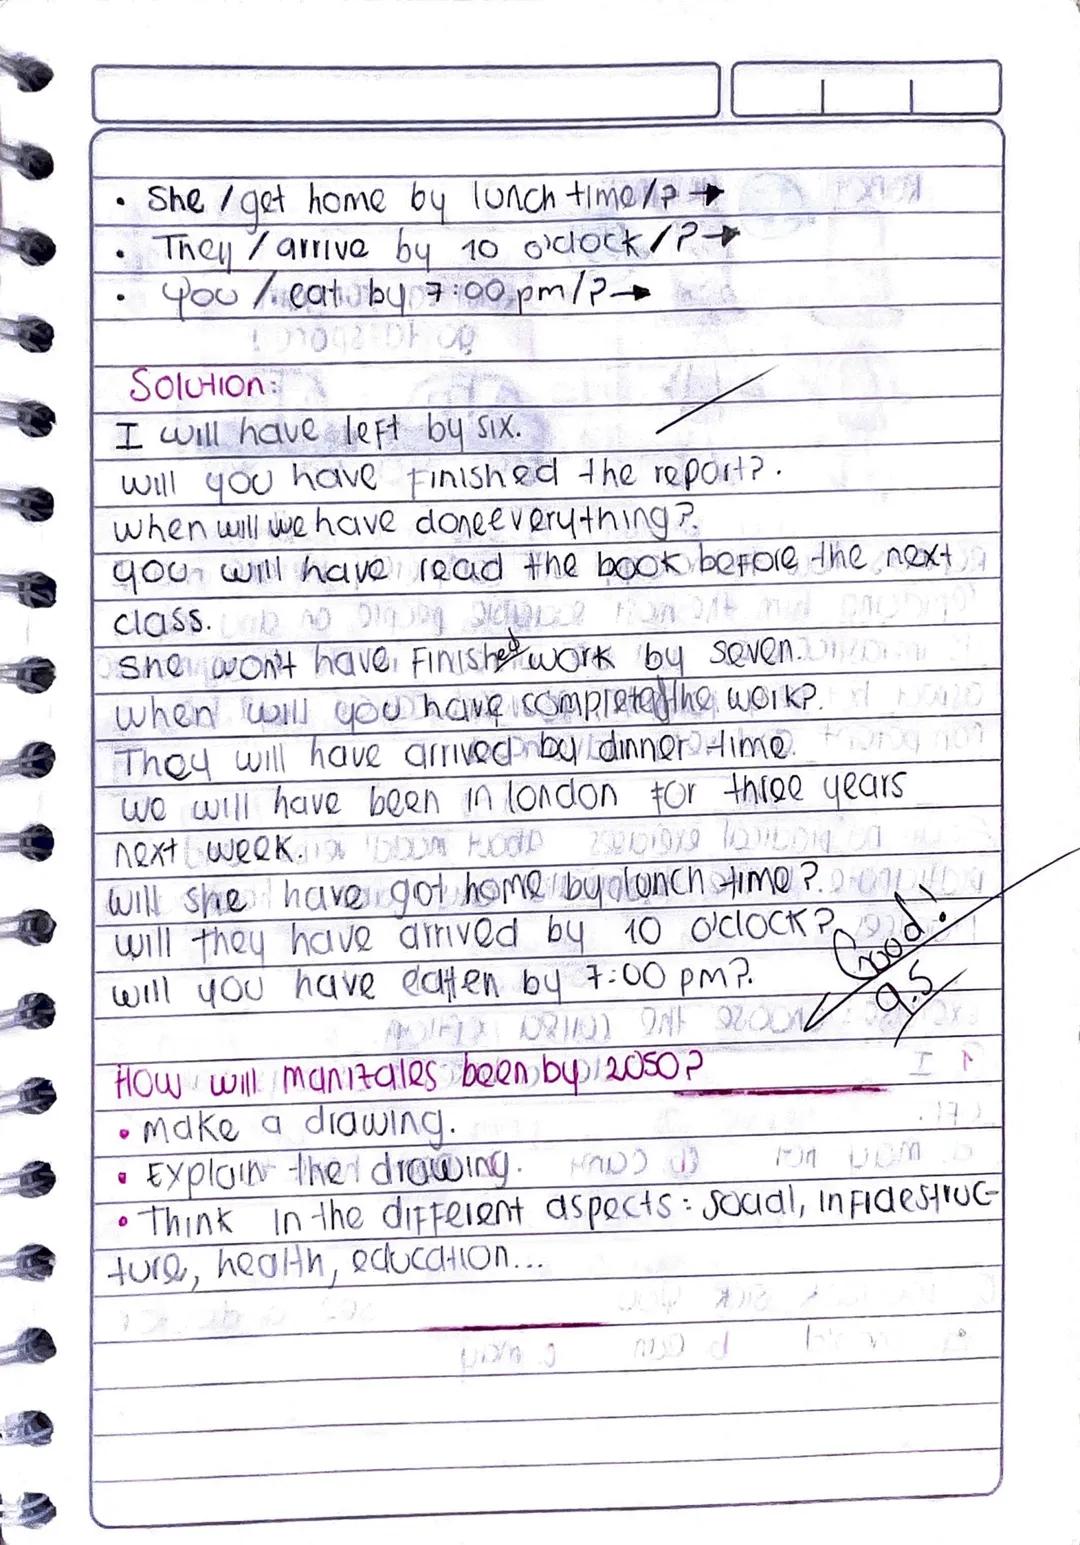 • She / get home by lunch time/? →
• They / arrive by 10 o'clock /? →
• you / eat by 7:00 pm/? →
Solution:
I will have left by six.
will you have finished the report?.
when will we have done everything?.
you will have read the book before the next
class.
She won't have finished work by seven.
when will you have completed the work?.
They will have arrived by dinner time.
we will have been in london for three years
next week.
will she have got home by lunch time?.
will they have arrived by 10 o'clock?
will you have eatten by 7:00 pm?.
Good!
9.5
How will manizales been by 2050?
• make a drawing.
• Explain the drawing.
• Think in the different aspects: social, infraestruc-
ture, health, education...